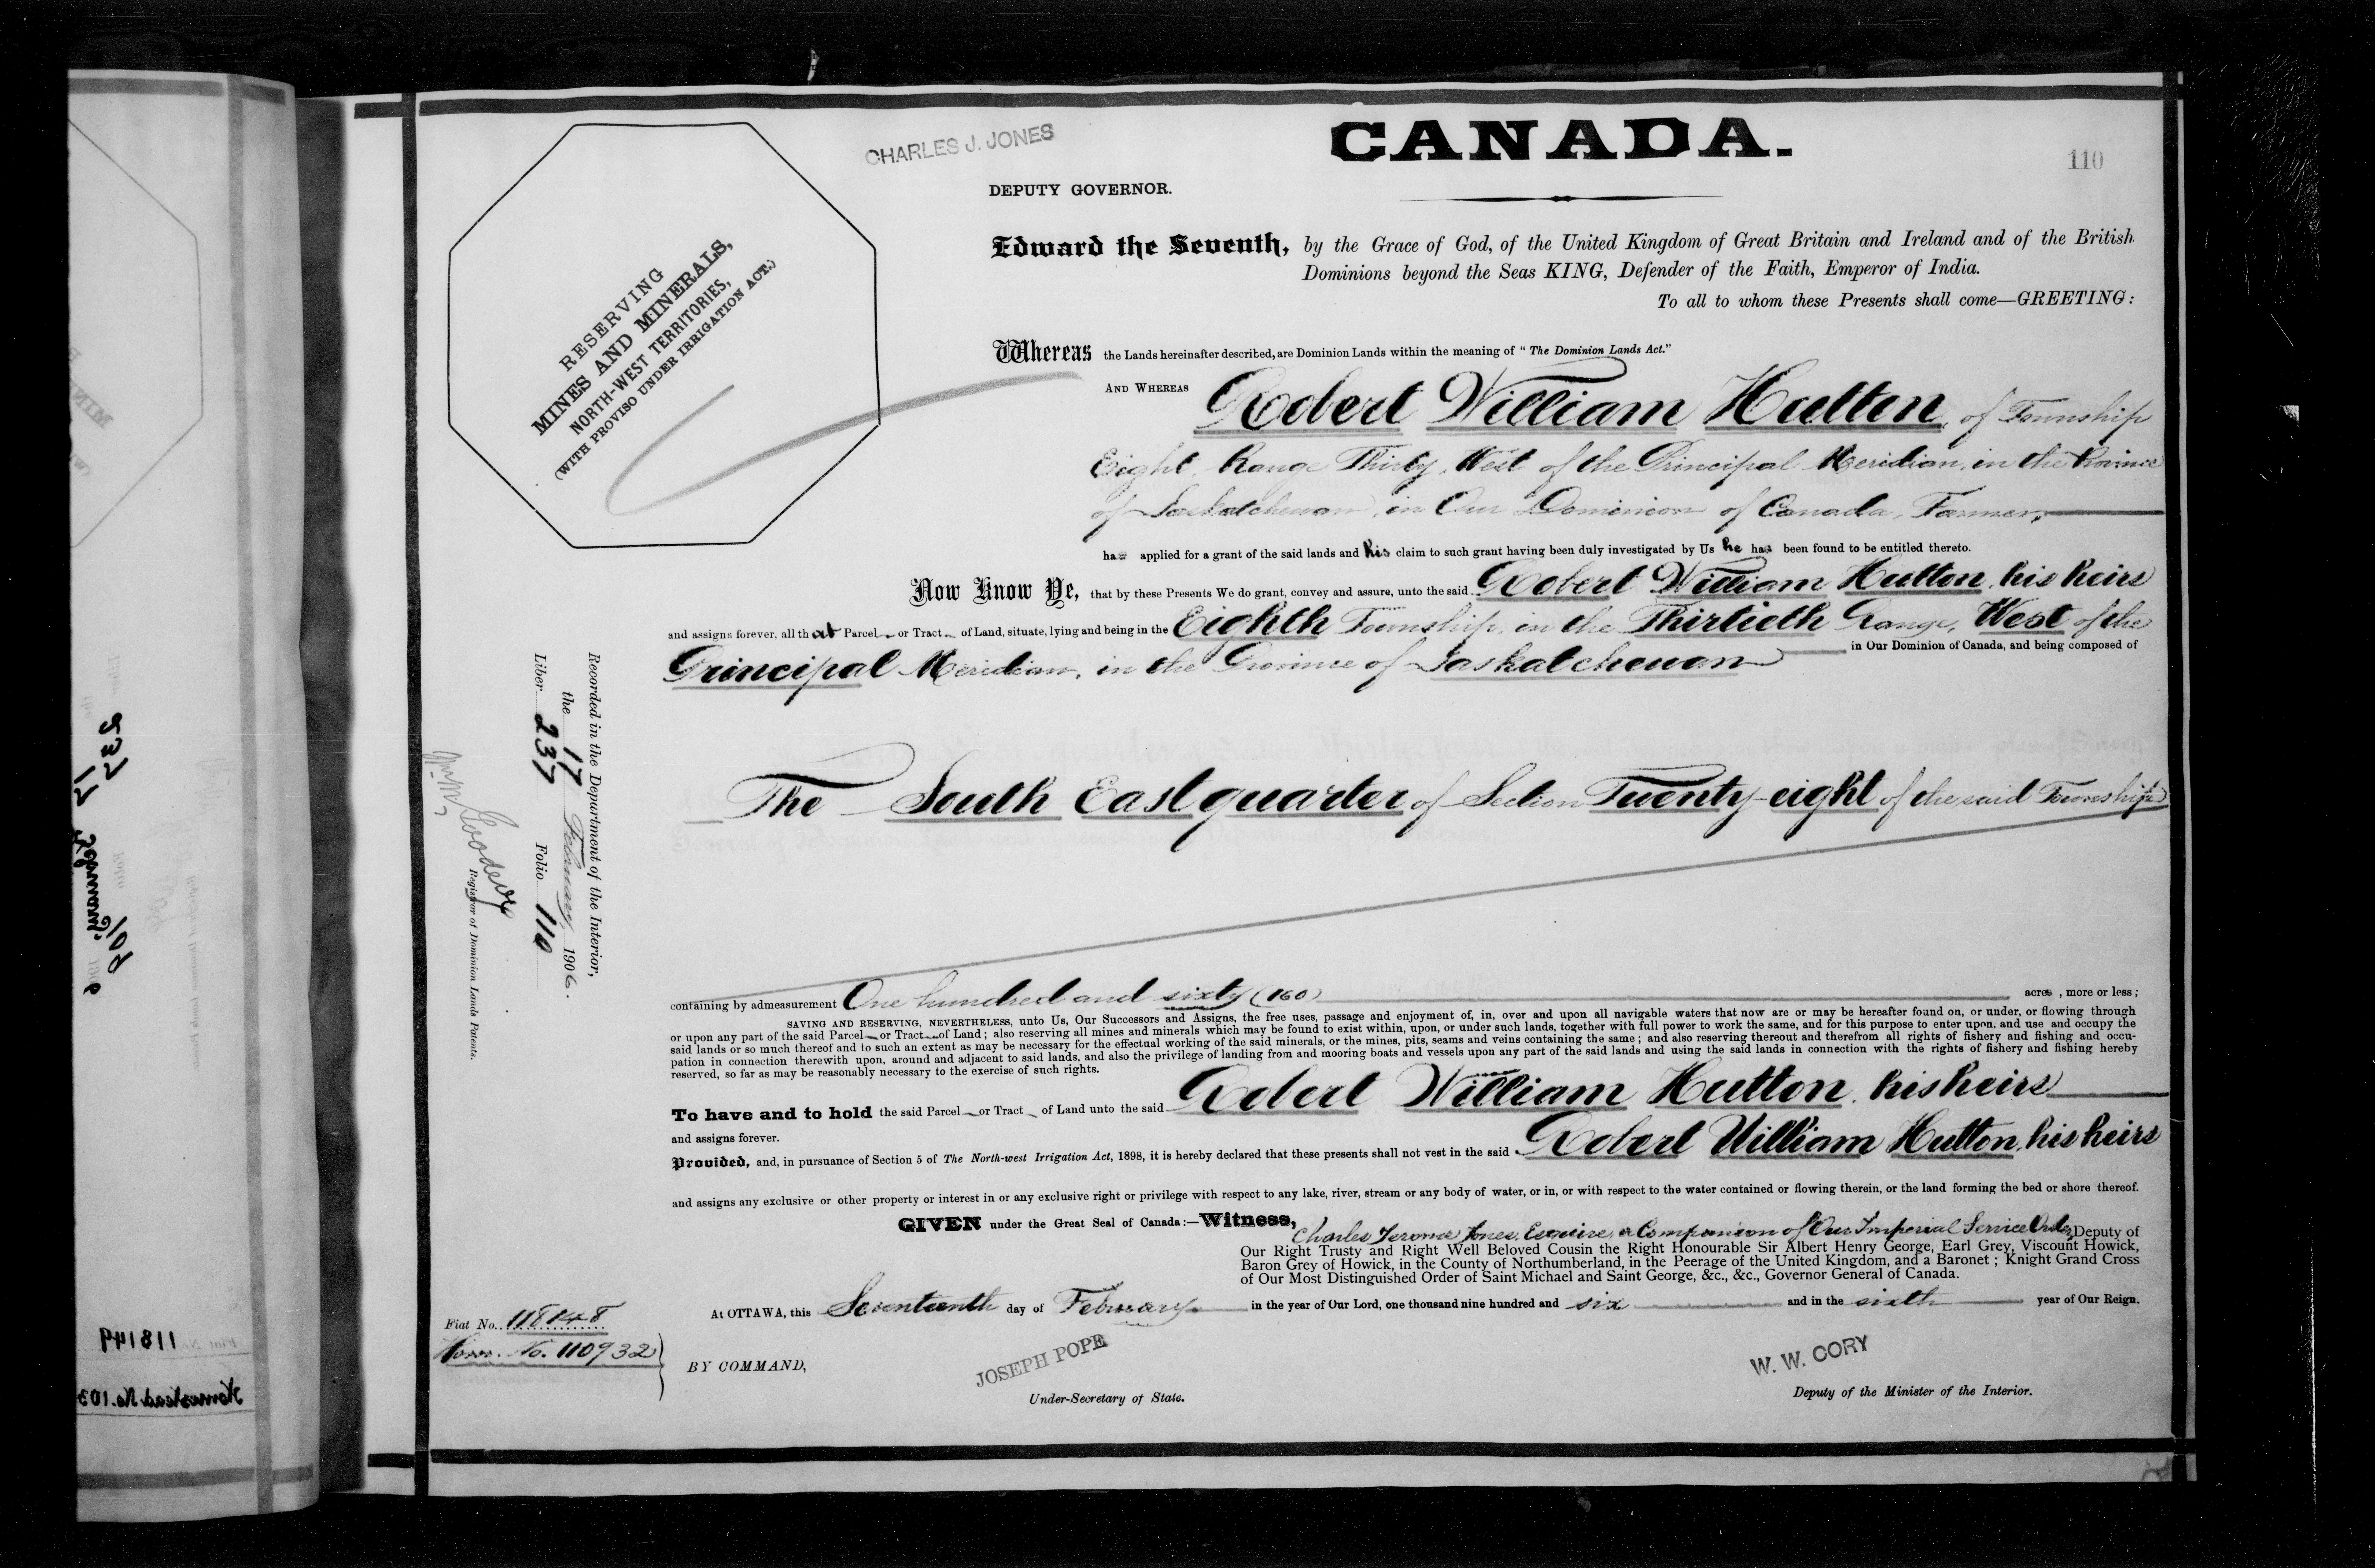 CHARLES J. JONES
CANADA.
110
DEPUTY GOVERNOR.
RESERVING
MINES AND MINERALS,
NORTH-WEST TERRITORIES,
(WITH PROVISO UNDER IRRIGATION ACT.)
Edward the Seventh, by the Grace of God, of the United Kingdom of Great Britain and Ireland and of the British
Dominions beyond the Seas KING, Defender of the Faith, Emperor of India.
To all to whom these Presents shall come—GREETING:
Whereas the Lands hereinafter described, are Dominion Lands within the meaning of "The Dominion Lands Act."
AND WHEREAS Robert William Hutton, of Township
Eight, Range Thirty, West of the Principal Meridian, in the Province
of Saskatchewan, in Our Dominion of Canada, Farmer,
has applied for a grant of the said lands and his claim to such grant having been duly investigated by Us he has been found to be entitled thereto.
Now Know Ye, that by these Presents We do grant, convey and assure, unto the said Robert William Hutton, his heirs
and assigns forever, all that Parcel or Tract of Land, situate, lying and being in the Eighth Township, in the Thirtieth Range, West of the
Principal Meridian, in the Province of Saskatchewan in Our Dominion of Canada, and being composed of
The South East quarter of Section Twenty-eight of the said Township
containing by admeasurement One hundred and sixty (160) acres, more or less;
SAVING AND RESERVING, NEVERTHELESS, unto Us, Our Successors and Assigns, the free uses, passage and enjoyment of, in, over and upon all navigable waters that now are or may be hereafter found on, or under, or flowing through
or upon any part of the said Parcel or Tract of Land; also reserving all mines and minerals which may be found to exist within, upon, or under such lands, together with full power to work the same, and for this purpose to enter upon, and use and occupy the
said lands or so much thereof and to such an extent as may be necessary for the effectual working of the said minerals, or the mines, pits, seams and veins containing the same; and also reserving thereout and therefrom all rights of fishery and fishing and occu-
pation in connection therewith upon, around and adjacent to said lands, and also the privilege of landing from and mooring boats and vessels upon any part of the said lands and using the said lands in connection with the rights of fishery and fishing hereby
reserved, so far as may be reasonably necessary to the exercise of such rights.
To have and to hold the said Parcel or Tract of Land unto the said Robert William Hutton, his heirs
and assigns forever.
Provided, and, in pursuance of Section 5 of The North-west Irrigation Act, 1898, it is hereby declared that these presents shall not vest in the said Robert William Hutton, his heirs
and assigns any exclusive or other property or interest in or any exclusive right or privilege with respect to any lake, river, stream or any body of water, or in, or with respect to the water contained or flowing therein, or the land forming the bed or shore thereof.
GIVEN under the Great Seal of Canada:—Witness,
Charles Jerome Jones, Esquire, a Companion of Our Imperial Service Order, Deputy of
Our Right Trusty and Right Well Beloved Cousin the Right Honourable Sir Albert Henry George, Earl Grey, Viscount Howick,
Baron Grey of Howick, in the County of Northumberland, in the Peerage of the United Kingdom, and a Baronet; Knight Grand Cross
of Our Most Distinguished Order of Saint Michael and Saint George, &c., &c., Governor General of Canada.
At OTTAWA, this Seventeenth day of February in the year of Our Lord, one thousand nine hundred and six and in the sixth year of Our Reign.
Fiat No. 118148
Hom. No. 110932
BY COMMAND,
JOSEPH POPE
Under-Secretary of State.
W. W. CORY
Deputy of the Minister of the Interior.
Recorded in the Department of the Interior,
the 17 February, 1906.
Liber 237 Folio 110
Wm M Goodeve
Registrar of Dominion Lands Patents.